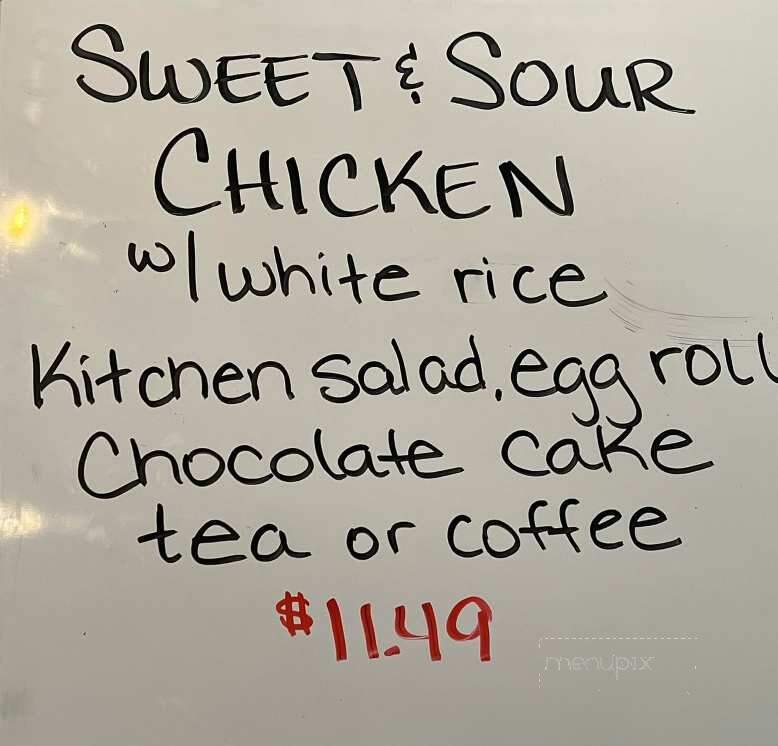 SWEET & SOUR
CHICKEN
w/ white rice
Kitchen salad, egg roll
Chocolate cake
tea or coffee
$11.49
menupix